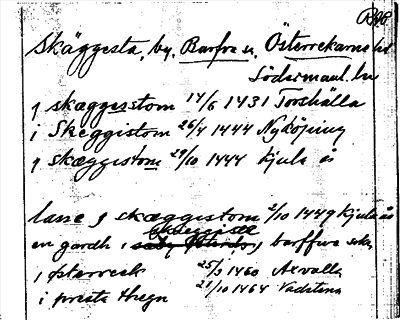 Skäggesta, by, Barfva sn, Österrekarne hd
Södermanl. län
j skæggesstom 14/6 1431 Torshälla
i Skeggistom 26/4 1444 Nyköping
j skæggistom 29/10 1444 Kjula ås
lasse j skæggistom 2/10 1449 Kjula ås
skeggistæ
en gardh i j barffua sokn
j østerreek 25/3 1460 Axvalla
i preste thegn 21/10 1464 Vadstena